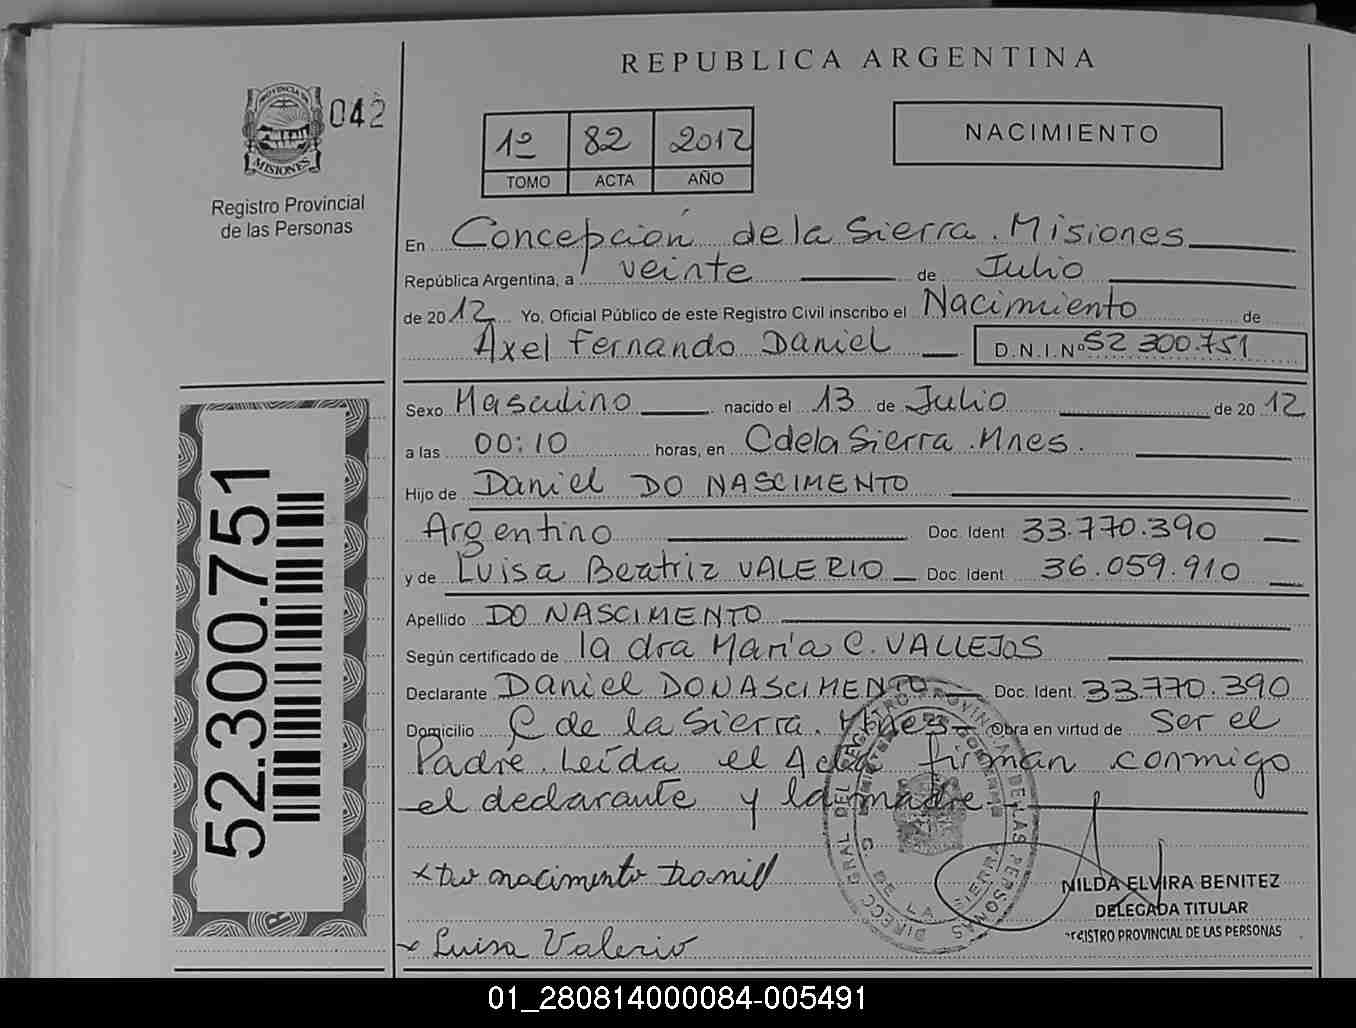 REPUBLICA ARGENTINA
PROVINCIA DE
MISIONES
042
Registro Provincial
de las Personas
1º 82 2012
TOMO ACTA AÑO
NACIMIENTO
En Concepción de la Sierra. Misiones
República Argentina, a veinte de Julio
de 2012 Yo, Oficial Público de este Registro Civil inscribo el Nacimiento de
Axel Fernando Daniel D.N.I.Nº 52 300.751
Sexo Masculino nacido el 13 de Julio de 2012
a las 00:10 horas, en C de la Sierra. Mnes.
Hijo de Daniel DO NASCIMENTO
Argentino Doc. Ident 33.770.390
y de Luisa Beatriz VALERIO Doc. Ident. 36.059.910
Apellido DO NASCIMENTO
Según certificado de la dra María C. VALLEJOS
Declarante Daniel DO NASCIMENTO Doc. Ident. 33.770.390
Domicilio C de la Sierra. Mnes Obra en virtud de Ser el
Padre. Leída el Acta firman conmigo
el declarante y la madre.
52.300.751
DIRECC GRAL DEL REGISTRO PROVINCIAL DE LAS PERSONAS
C. DE LA SIERRA
x Do nacimento Daniel
NILDA ELVIRA BENITEZ
DELEGADA TITULAR
REGISTRO PROVINCIAL DE LAS PERSONAS
x Luisa Valerio
01_280814000084-005491